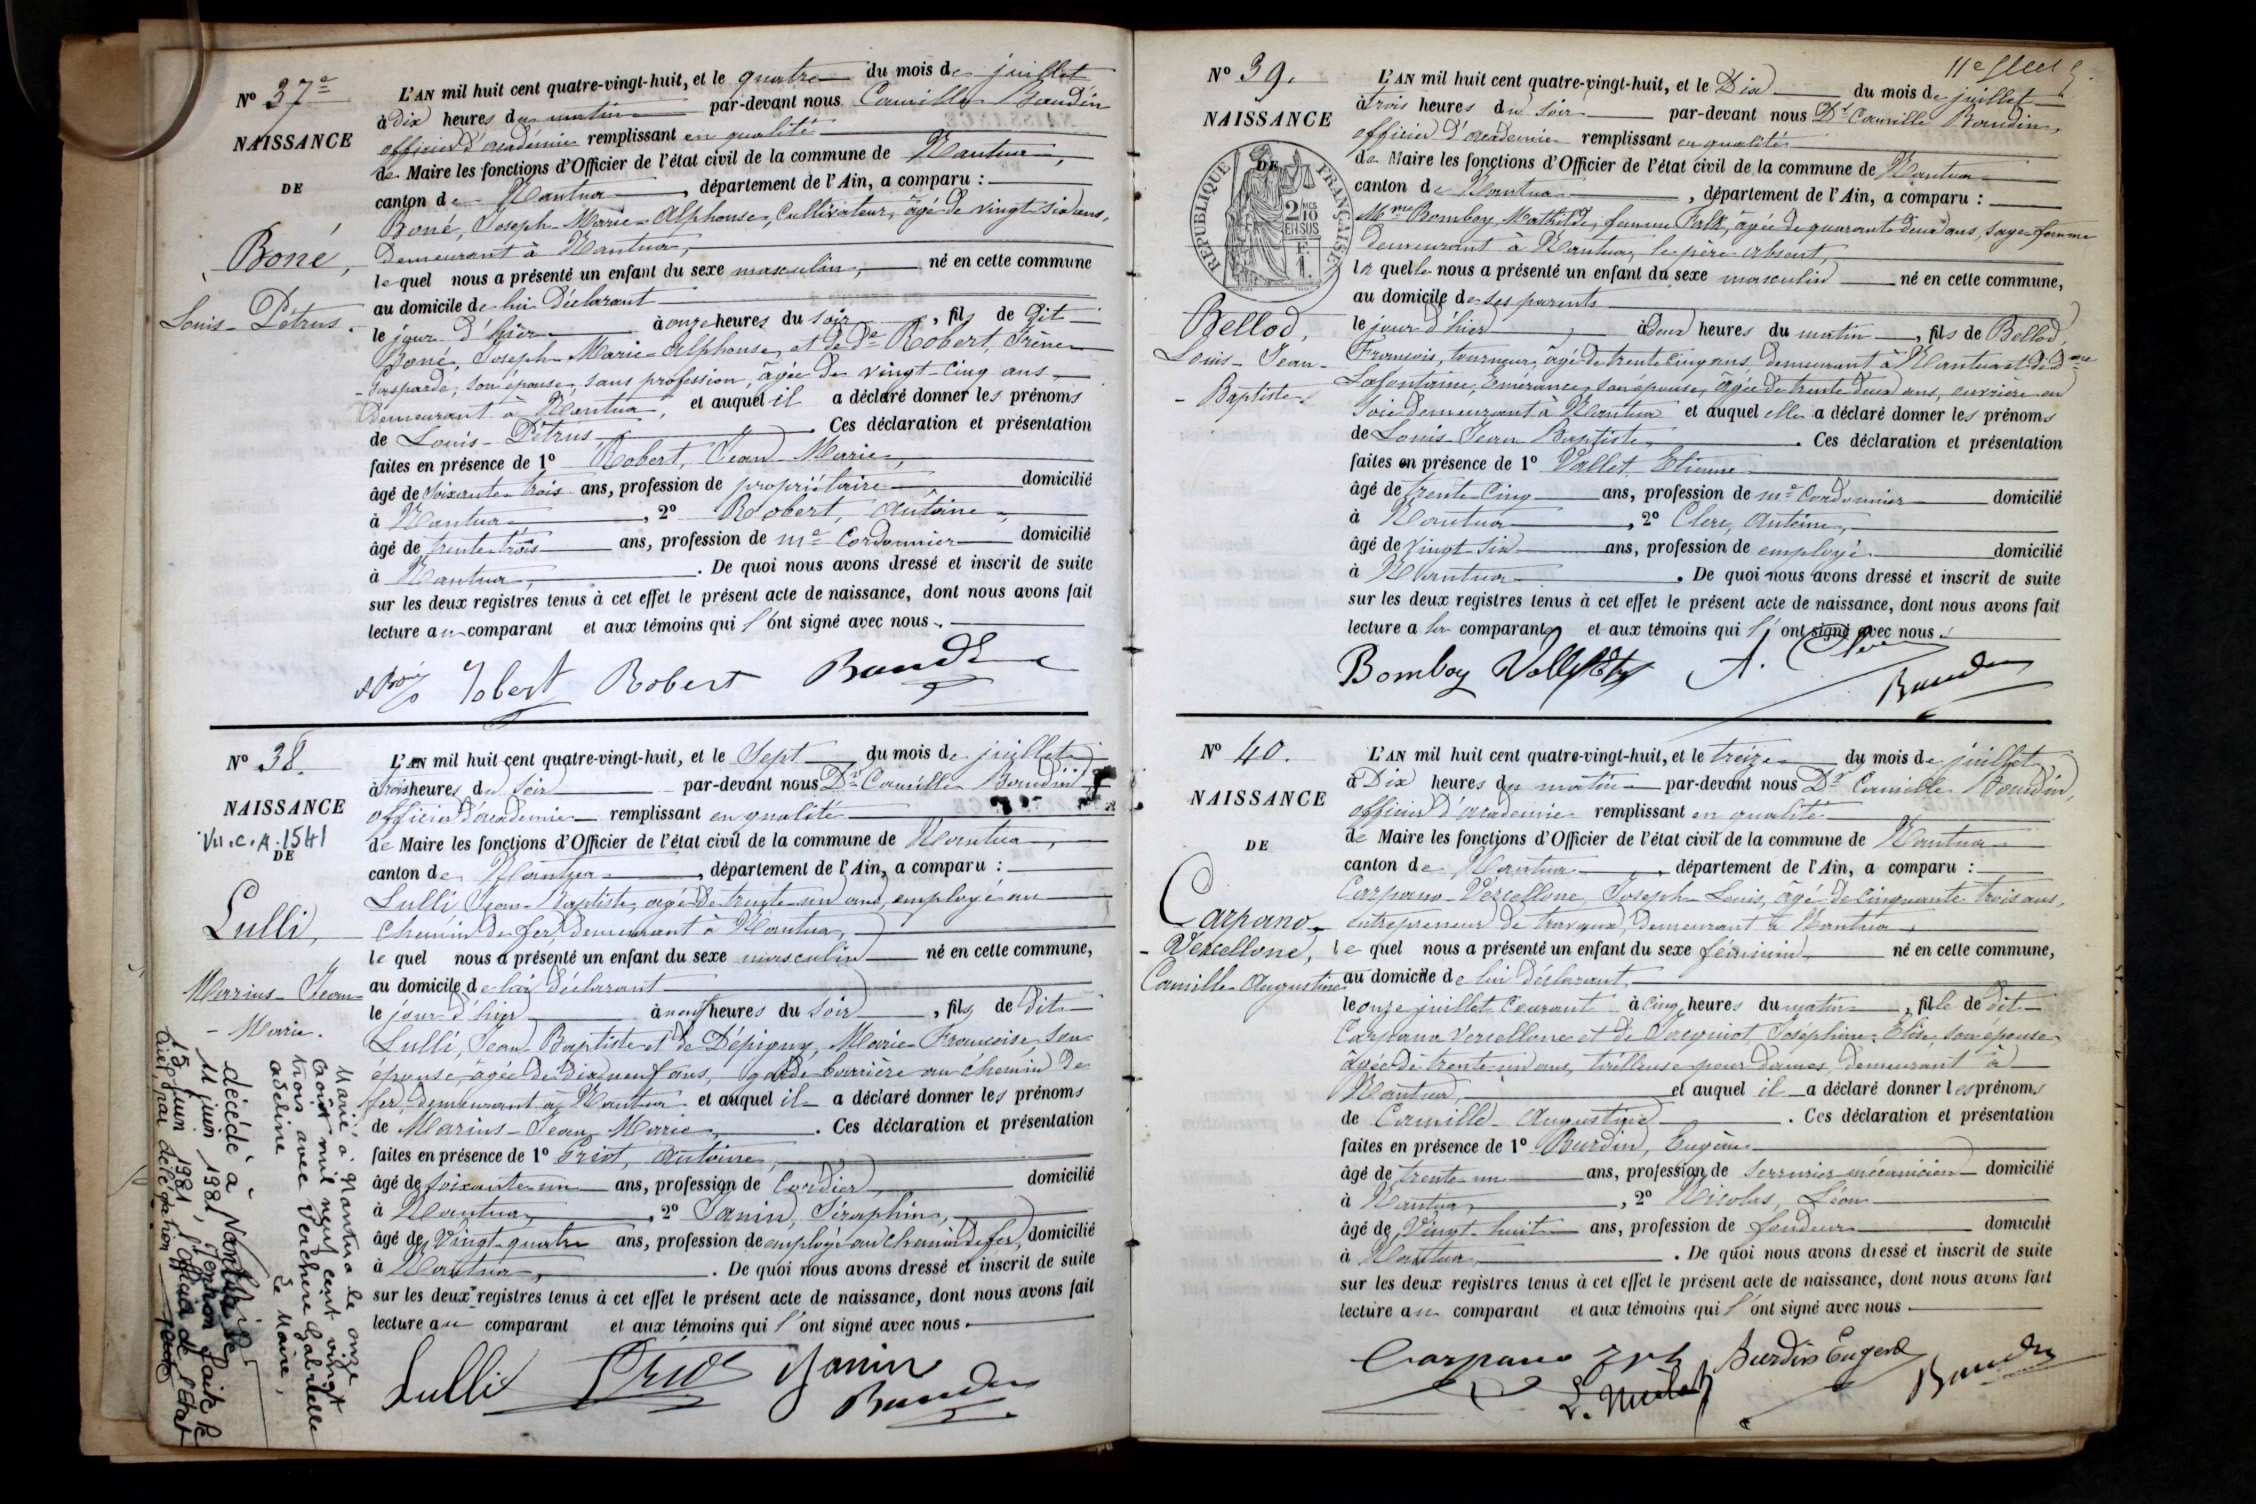 N° 37e
NAISSANCE
DE
Boné,
Louis-Pétrus.
L'AN mil huit cent quatre-vingt-huit, et le quatre du mois de juillet
à Dix heures du matin par-devant nous Camille Baudin
officier d'académie remplissant en qualité
de Maire les fonctions d'Officier de l'état civil de la commune de Nantua,
canton de Nantua, département de l'Ain, a comparu :
Boné, Joseph-Marie-Alphonse, Cultivateur, âgé de vingt-six ans,
Demeurant à Nantua,
lequel nous a présenté un enfant du sexe masculin, né en cette commune
au domicile de lui Déclarant
le jour d'hier à onze heures du soir, fils de Dit
Boné, Joseph-Marie-Alphonse, et de De Robert, Irène
-Gasparde, son épouse, sans profession, âgée de vingt-cinq ans,
Demeurant à Nantua, et auquel il a déclaré donner les prénoms
de Louis-Pétrus. Ces déclaration et présentation
faites en présence de 1° Robert, Jean-Marie,
âgé de soixante-trois ans, profession de propriétaire domicilié
à Nantua, 2° Robert, Antoine,
âgé de trente-trois ans, profession de me Cordonnier domicilié
à Nantua,. De quoi nous avons dressé et inscrit de suite
sur les deux registres tenus à cet effet le présent acte de naissance, dont nous avons fait
lecture au comparant et aux témoins qui l'ont signé avec nous.
Robert Baudin
N° 38.
NAISSANCE
Vu.C.A.1541
DE
Lulli,
Marius-Jean-
-Marie.
Marié à Nantua le onze
août mil neuf cent vingt
trois avec Verchère Gabrielle
Adeline Le Maire,
décédé à Nantua le
11 juin 1981, Mention faite le
15 juin 1981, l'officier de l'état
civil par délégation
L'AN mil huit cent quatre-vingt-huit, et le Sept du mois de juillet
à trois heures du soir par-devant nous Dr Camille Baudin
officier d'académie remplissant en qualité
de Maire les fonctions d'Officier de l'état civil de la commune de Nantua,
canton de Nantua, département de l'Ain, a comparu :
Lulli Jean-Baptiste, âgé de trente-un ans, employé au
Chemin de fer, demeurant à Nantua,
lequel nous a présenté un enfant du sexe masculin né en cette commune,
au domicile de lui déclarant
le jour d'hier à neuf heures du soir, fils de dit
Lulli, Jean-Baptiste et de Dépigny, Marie-Françoise, son
épouse, âgée de dix neuf ans, garde barrière au chemin de
fer, demeurant à Nantua et auquel il a déclaré donner les prénoms
de Marius-Jean-Marie,. Ces déclaration et présentation
faites en présence de 1° Griot, Antoine,
âgé de soixante-un ans, profession de Cordier, domicilié
à Nantua, 2° Janin, Séraphin,
âgé de Vingt-quatre ans, profession de employé au chemin de fer, domicilié
à Nantua,. De quoi nous avons dressé et inscrit de suite
sur les deux registres tenus à cet effet le présent acte de naissance, dont nous avons fait
lecture au comparant et aux témoins qui l'ont signé avec nous.
Lulli Griot Janin
Baudin
11e
N° 39.
NAISSANCE
DE
RÉPUBLIQUE FRANÇAISE
2 MES 10 EN SUS
Bellod,
Louis-Jean-
-Baptiste
L'AN mil huit cent quatre-vingt-huit, et le Dix du mois de juillet
à trois heures du soir par-devant nous Dr Camille Baudin,
officier d'académie remplissant en qualité
de Maire les fonctions d'Officier de l'état civil de la commune de Nantua
canton de Nantua, département de l'Ain, a comparu :
Mme Bomboy Mathilde, femme Falk, âgée de quarante deux ans, sage-femme
Demeurant à Nantua, le père absent,
laquelle nous a présenté un enfant du sexe masculin né en cette commune,
au domicile de ses parents
le jour d'hier à Deux heures du matin, fils de Bellod,
François, tourneur, âgé de trente cinq ans, demeurant à Nantua et de Dame
Lafontaine, Émerance, son épouse, âgée de trente deux ans, ouvrière en
soie demeurant à Nantua et auquel elle a déclaré donner les prénoms
de Louis-Jean Baptiste,. Ces déclaration et présentation
faites en présence de 1° Vallet, Etienne
âgé de trente-cinq ans, profession de me cordonnier domicilié
à Nantua, 2° Clerc, Antoine,
âgé de vingt-six ans, profession de employé domicilié
à Nantua. De quoi nous avons dressé et inscrit de suite
sur les deux registres tenus à cet effet le présent acte de naissance, dont nous avons fait
lecture a la comparante et aux témoins qui l'ont signé avec nous.
Bomboy A. Clerc
Baudin
N° 40.
NAISSANCE
DE
Carpano-
-Vercellone,
Camille-Augustine
L'AN mil huit cent quatre-vingt-huit, et le treize du mois de juillet
à Dix heures du matin par-devant nous Dr Camille Baudin,
officier d'académie remplissant en qualité
de Maire les fonctions d'Officier de l'état civil de la commune de Nantua
canton de Nantua, département de l'Ain, a comparu :
Carpano-Vercellone, Joseph-Louis, âgé de cinquante trois ans,
entrepreneur de travaux, demeurant à Nantua,
lequel nous a présenté un enfant du sexe féminin né en cette commune,
au domicile de lui déclarant,
le onze juillet courant à cinq heures du matin, fille de dit
Carpano Vercellone et de Jacquiot Joséphine-Élise son épouse
âgée de trente-un ans, tailleuse pour dames, demeurant à
Nantua, et auquel il a déclaré donner les prénoms
de Camille-Augustine. Ces déclaration et présentation
faites en présence de 1° Burdin, Eugène
âgé de trente-un ans, profession de serrurier-mécanicien domicilié
à Nantua, 2° Nicolas, Léon
âgé de Vingt-huit ans, profession de fondeur domicilié
à Nantua,. De quoi nous avons dressé et inscrit de suite
sur les deux registres tenus à cet effet le présent acte de naissance, dont nous avons fait
lecture au comparant et aux témoins qui l'ont signé avec nous
Carpano Burdin Eugène Baudin